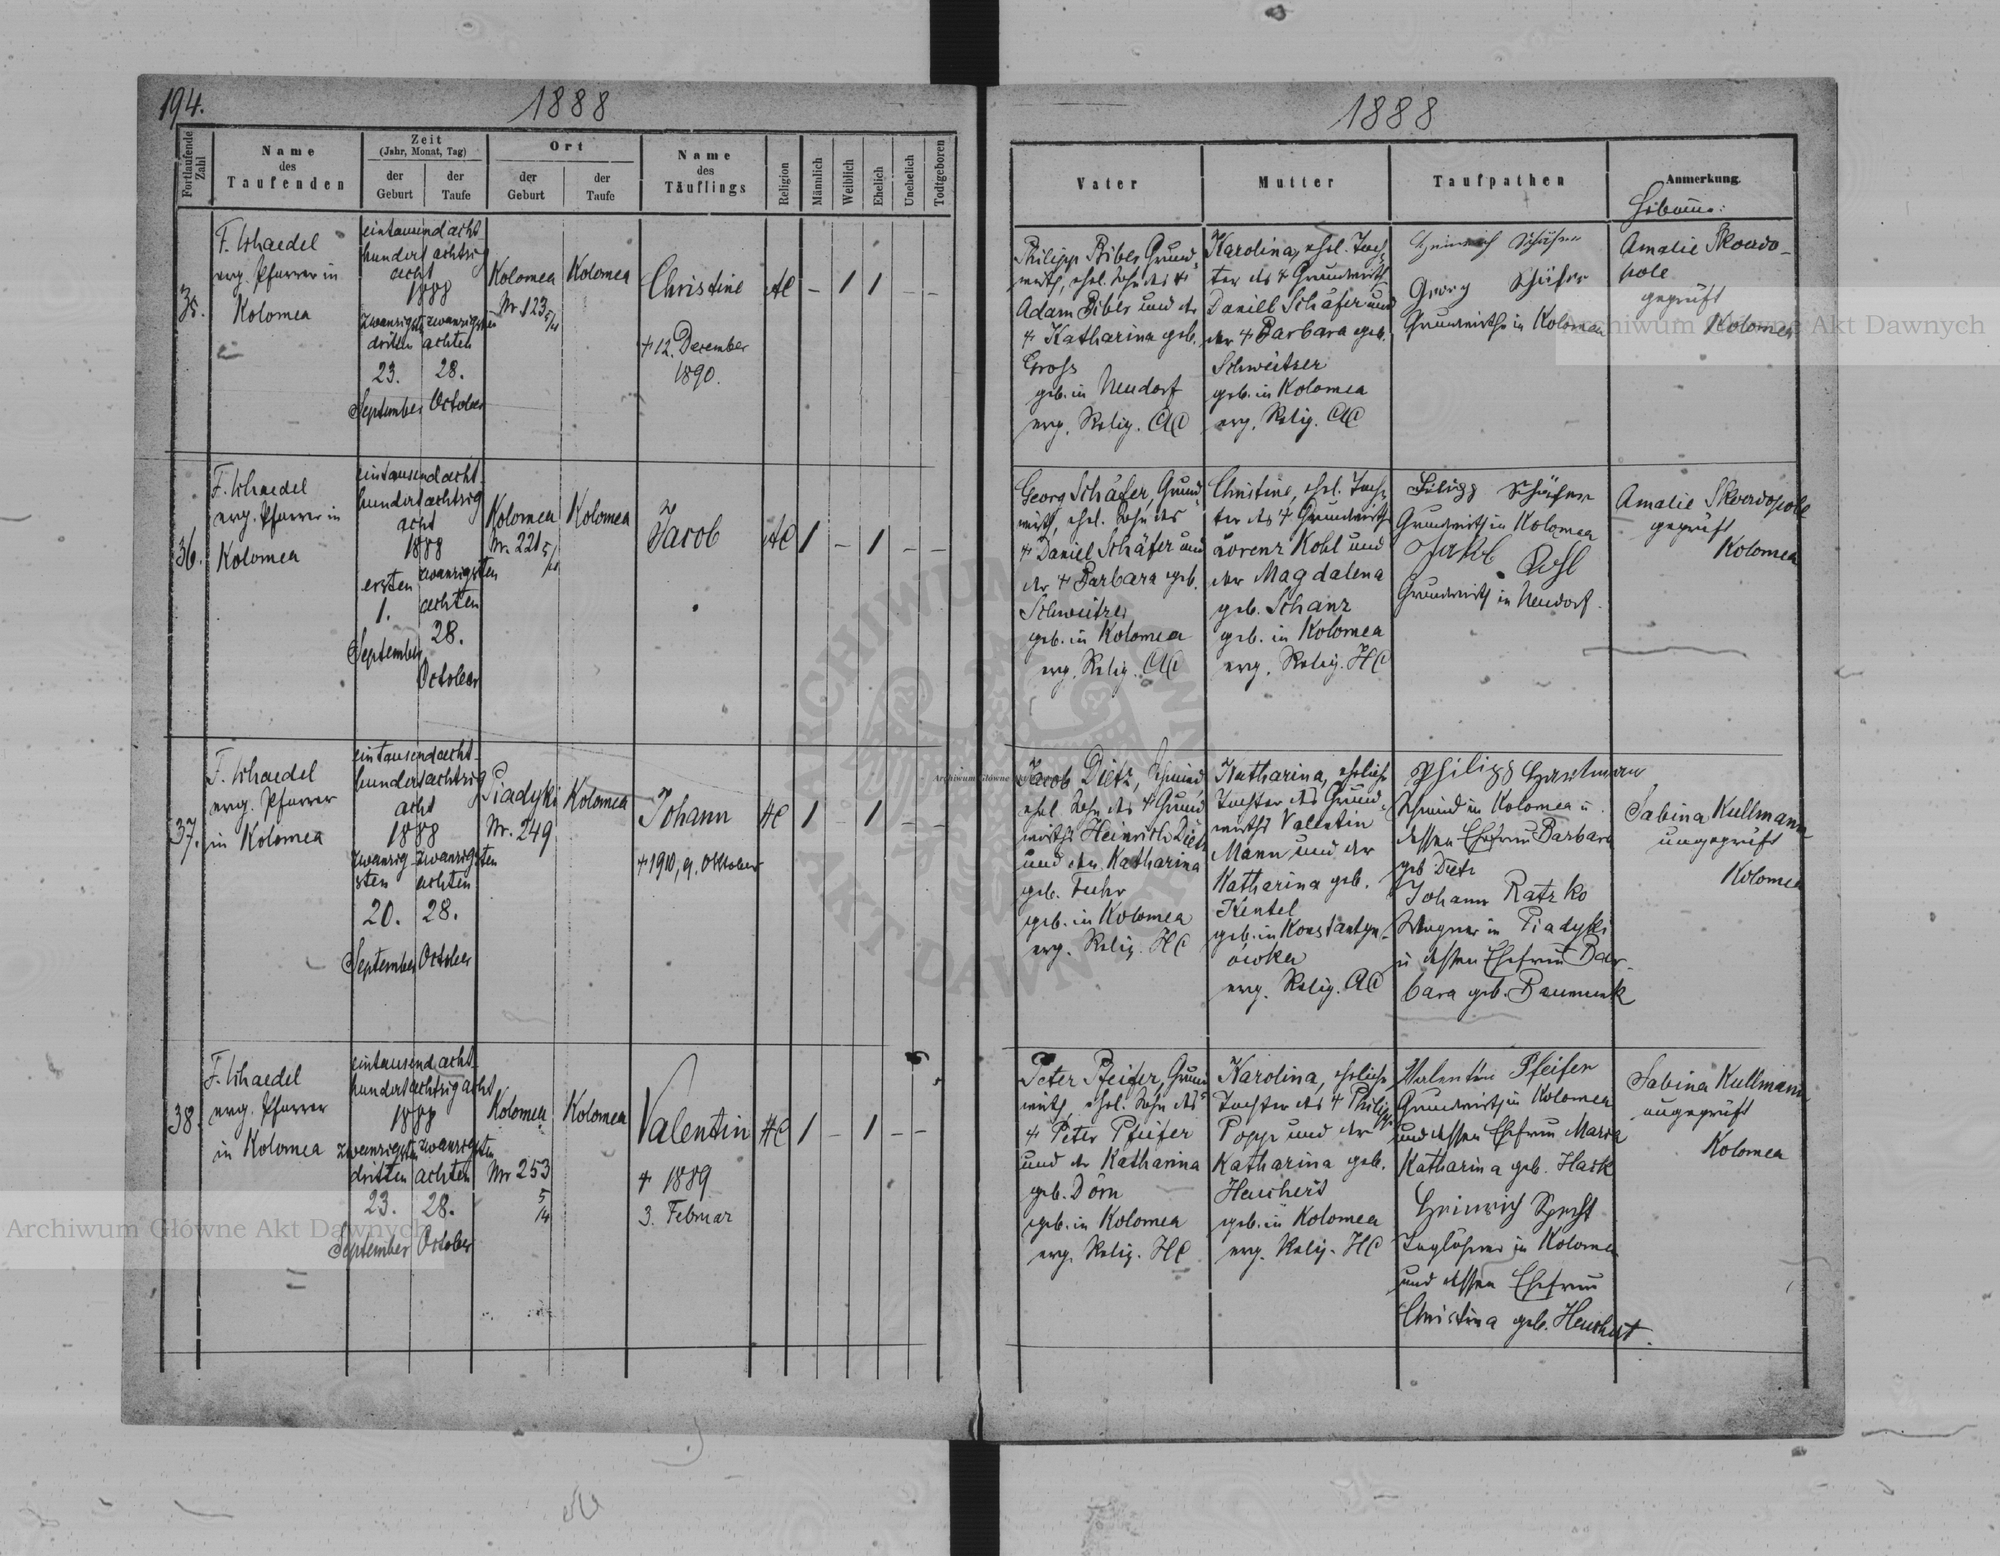 194.
1888
1888
Fortlaufende Zahl
Name
des
Taufenden
Zeit
(Jahr, Monat, Tag)
der
Geburt
der
Taufe
Ort
der
Geburt
der
Taufe
Name
des
Täuflings
Religion
Männlich
Weiblich
Ehelich
Unehelich
Todtgeboren
Vater
Mutter
Taufpathen
Anmerkung.
35.
evg. Pfarrer in
Kolomea
eintausend acht
hundert achtzig
acht
1888
zwanzigsten
dritten
23.
September
zwanzigsten
achten
28.
October
Kolomea
Nr. 123
Kolomea
Christine
† 12. December
1890.
AC
–
1
1
–
–
Philipp Biber Grund-
wirth, ehel. Sohn des †
Adam Biber und der
† Katharina geb.
Gross
geb. in Neudorf
evg. Relig. AC
Karolina, ehel. Toch-
ter des † Grundwirth
Daniel Schäfer und
der † Barbara geb.
Schweitzer
geb. in Kolomea
evg. Relig. AC
Heinrich Schäfer
Georg Schäfer
Grundwirthe in Kolomea
Amalie Skowdo-
pole
geprüft
Kolomea
36.
evg. Pfarrer in
Kolomea
eintausend acht
hundert achtzig
acht
1888
ersten
1.
September
zwanzigsten
achten
28.
October
Kolomea
Nr. 221
Kolomea
Jacob
AC
1
–
1
–
–
Georg Schäfer, Grund-
wirth, ehel. Sohn des
† Daniel Schäfer und
der † Barbara geb.
Schweitzer
geb. in Kolomea
evg. Relig. AC
Christine, ehel. Toch-
ter des † Grundwirth
Lorenz Kohl und
der Magdalena
geb. Schanz
geb. in Kolomea
evg. Relig. HC
Filipp Schäfer
Grundwirth in Kolomea
Jakob Kohl
Grundwirth in Neudorf.
Amalie Skowdopole
geprüft
Kolomea
37.
evg. Pfarrer
in Kolomea
eintausend acht
hundert achtzig
acht
1888
zwanzig-
sten
20.
September
zwanzigsten
achten
28.
October
Piadyki
Nr. 249
Kolomea
Johann
† 1910, 9. Oktober
HC
1
–
1
–
–
Jacob Dietz, Schmied,
ehel. Sohn des † Grund-
wirths Heinrich Dietz
und der Katharina
geb. Fuhr
geb. in Kolomea
evg. Relig. HC
Katharina, eheliche
Tochter des Grund-
wirths Valentin
Mann und der
Katharina geb.
Kentel
geb. in Konstantyn-
ówka
evg. Relig. AC
Philipp Hartmann
Schmied in Kolomea u.
dessen Ehefrau Barbara
geb Dietz
Johann Ratzko
Wagner in Piadyki
u dessen Ehefrau Bar-
bara geb.
Sabina Kullmann
ungeprüft
Kolomea
38.
evg. Pfarrer
in Kolomea
eintausend acht
hundert achtzig acht
1888
zwanzigsten
dritten
23.
September
zwanzigsten
achten
28.
October
Kolomea
Nr 253
Kolomea
Valentin
† 1889
3. Februar
HC
1
–
1
–
–
Peter Pfeifer, Grund-
wirth, ehel. Sohn des
† Peter Pfeifer
und der Katharina
geb. Dörn
geb. in Kolomea
evg. Relig. HC
Karolina, eheliche
Tochter des † Philipp
Popp und der
Katharina geb.
Heuchert
geb. in Kolomea
evg. Relig. HC
Valentin Pfeifer
Grundwirth in Kolomea
und dessen Ehefrau Maria
Katharina geb. Hack
Heinrich Specht
Taglöhner in Kolomea
und dessen Ehefrau
Christina geb. Heuchert.
Sabina Kullmann
ungeprüft
Kolomea
Archiwum Główne Akt Dawnych
Archiwum Główne Akt Dawnych